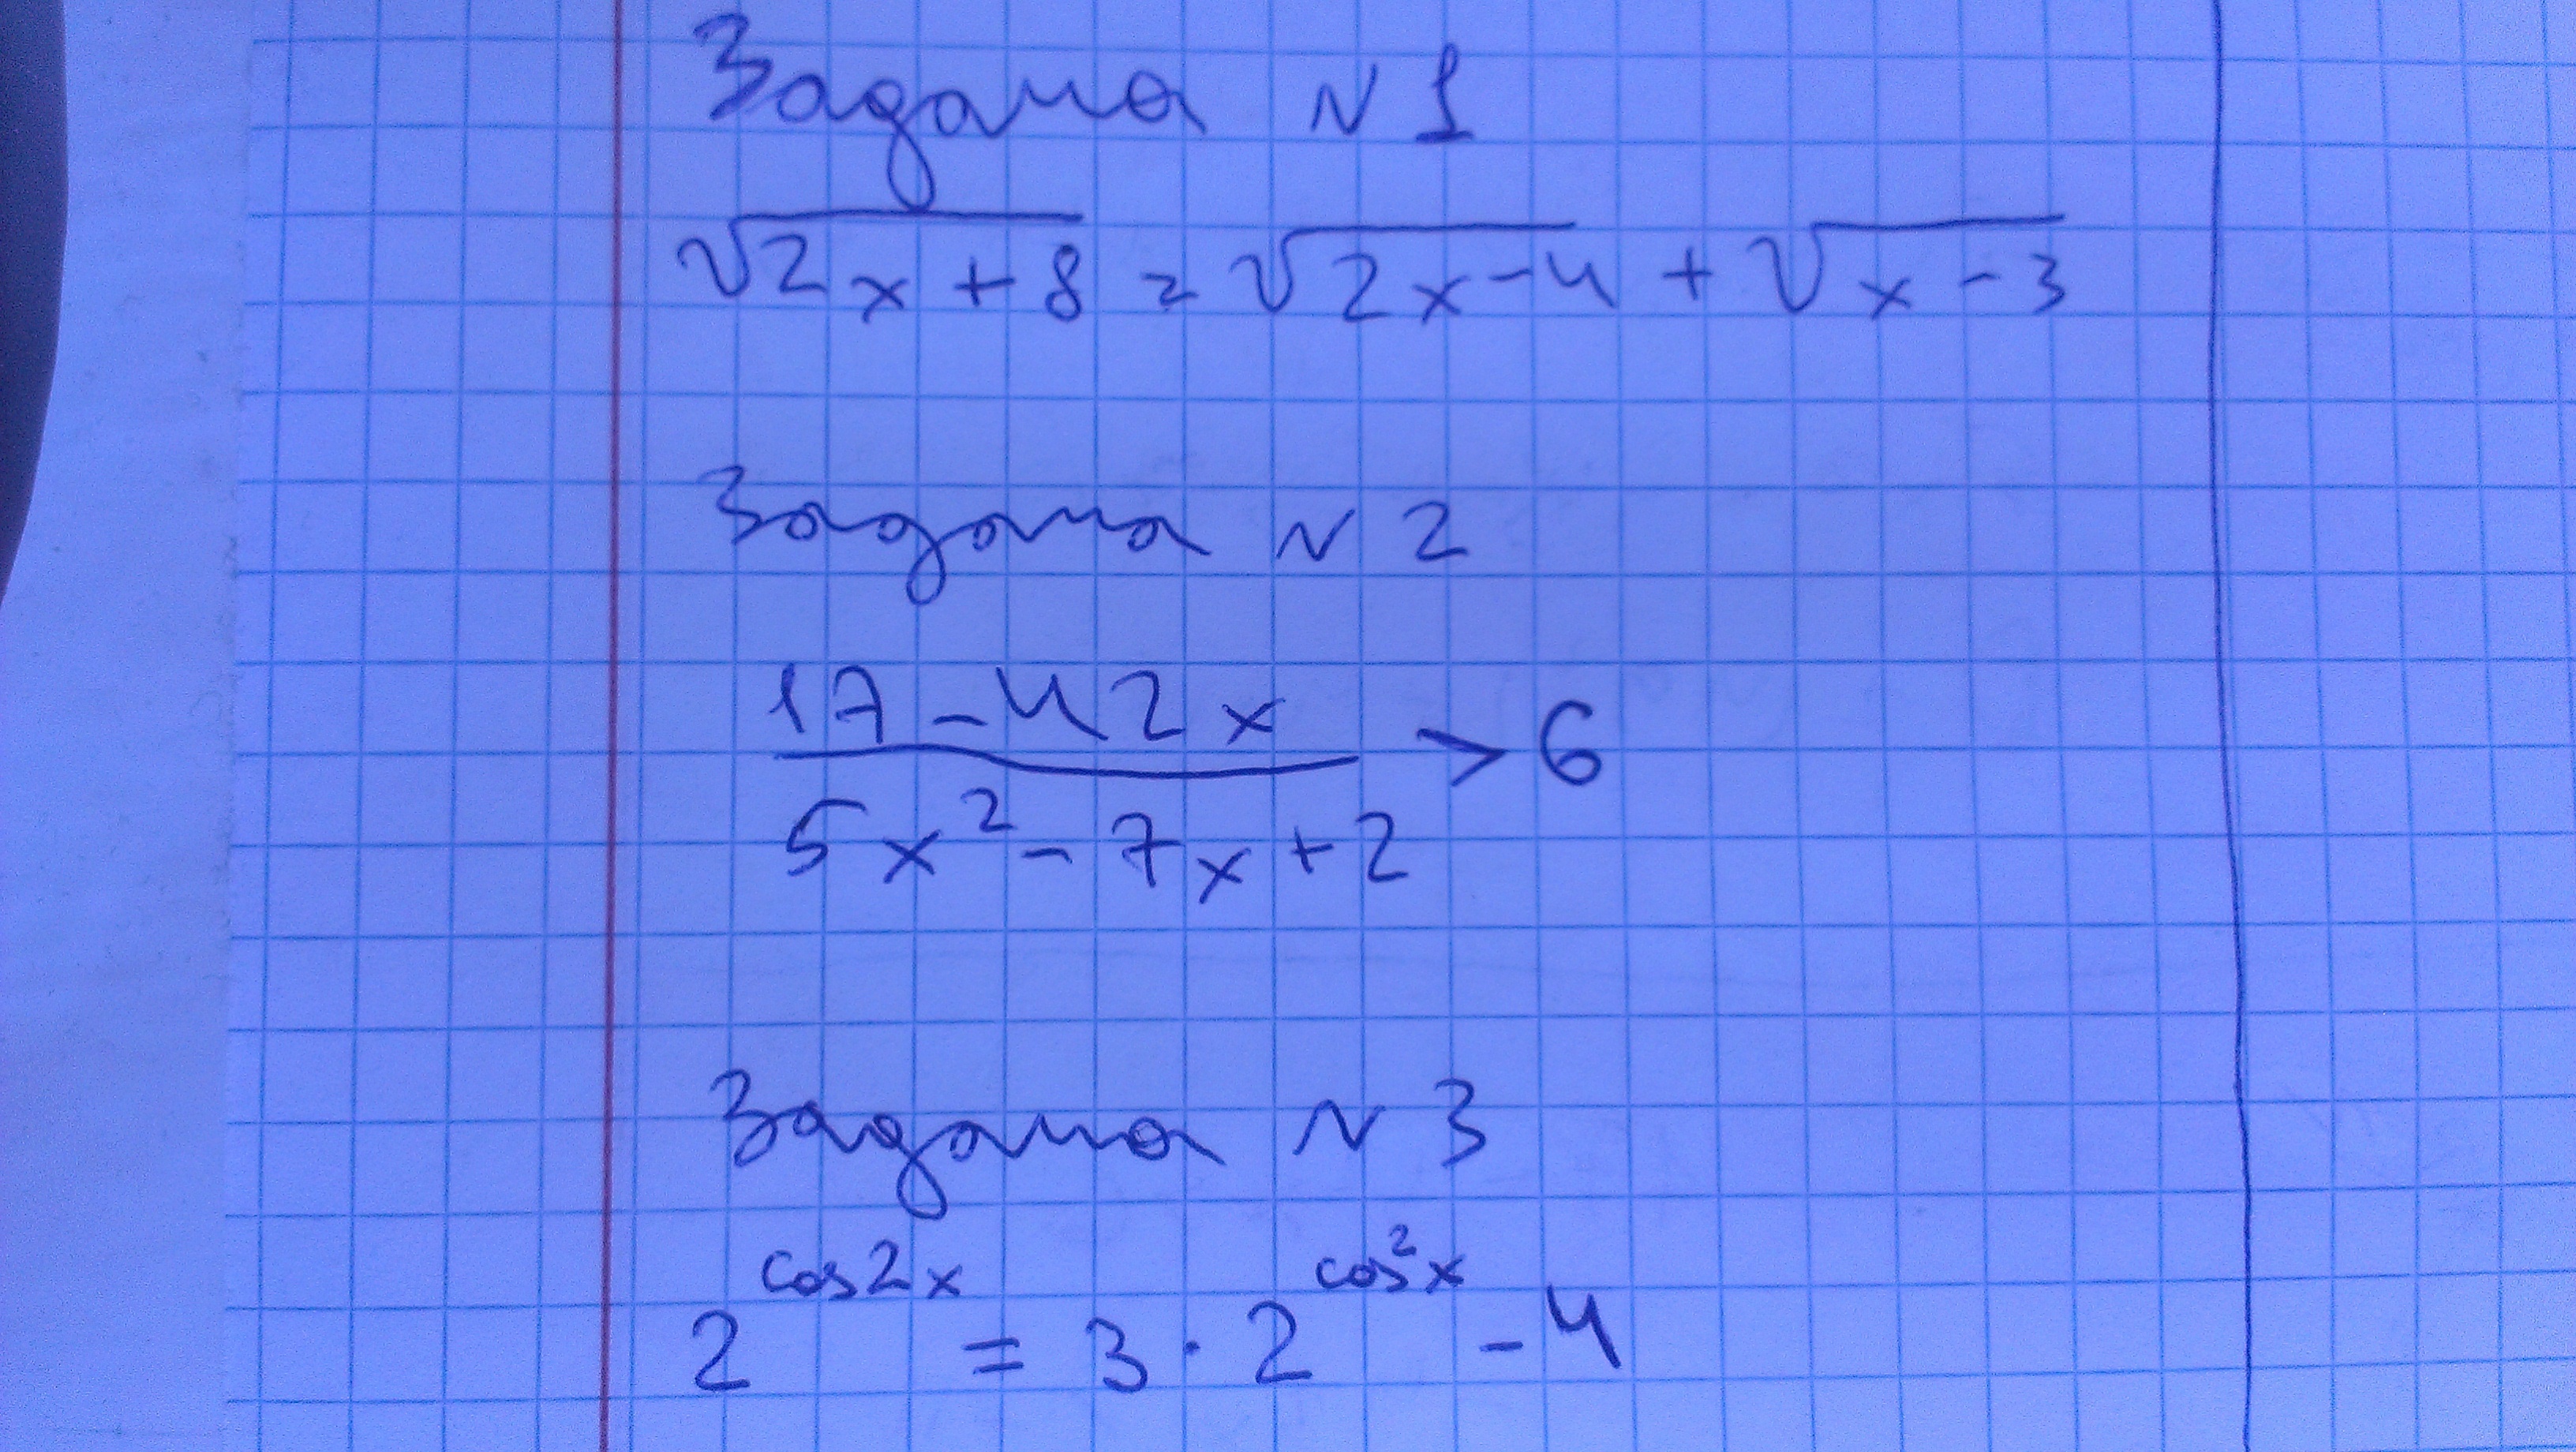 Задача N 1
√2x + 8 = √2x - 4 + √x - 3
Задача N 2
17 - 42x / 5x² - 7x + 2 > 6
Задача N 3
2^cos2x = 3 · 2^cos²x - 4